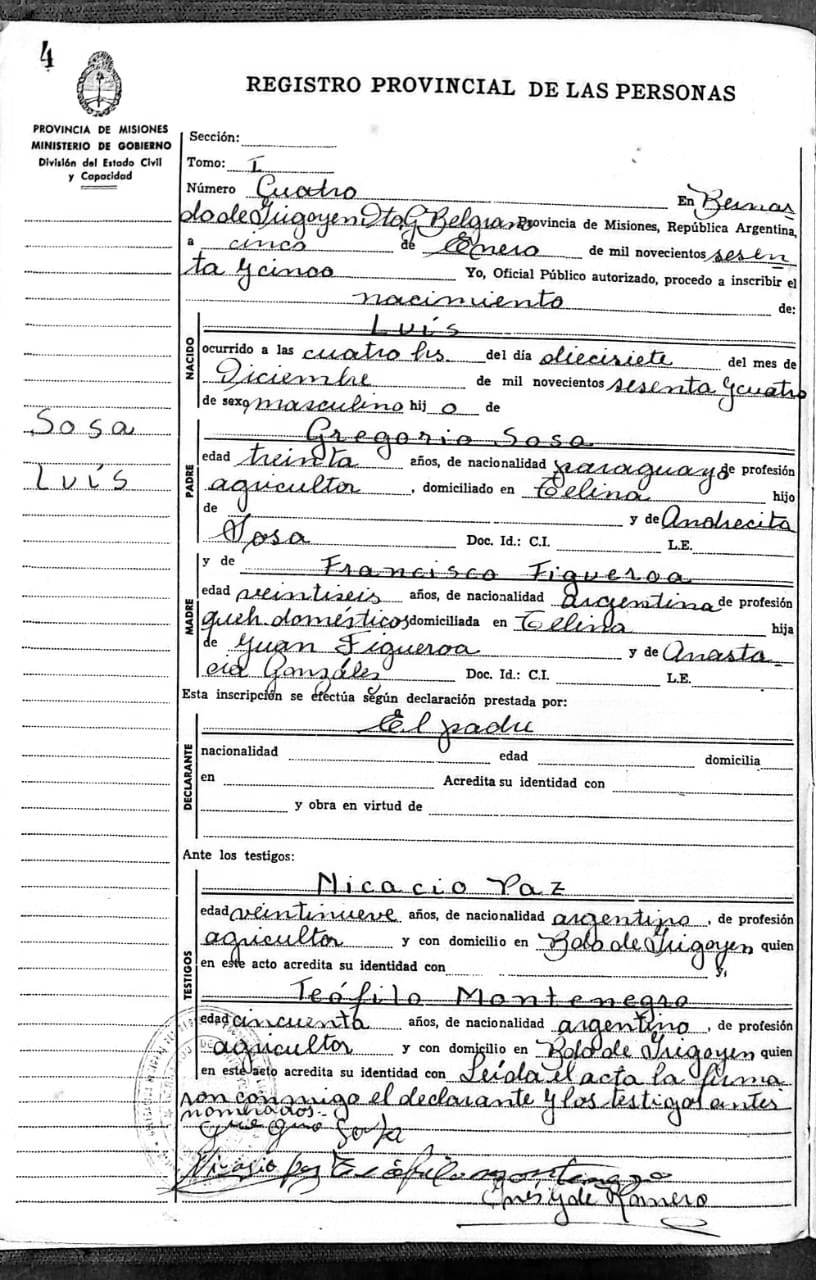 4
REGISTRO PROVINCIAL DE LAS PERSONAS
PROVINCIA DE MISIONES
MINISTERIO DE GOBIERNO
División del Estado Civil
y Capacidad
Sección:
Tomo: I
Número Cuatro En Bernar
do de Irigoyen Dto G. Belgrano Provincia de Misiones, República Argentina,
a cinco de Enero de mil novecientos sesen
ta y cinco Yo, Oficial Público autorizado, procedo a inscribir el
nacimiento de:
NACIDO
Luís
ocurrido a las cuatro hs. del día diecisiete del mes de
Diciembre de mil novecientos sesenta y cuatro
de sexo masculino hij o de
Sosa
Luís
PADRE
Gregorio Sosa
edad treinta años, de nacionalidad paraguayo de profesión
agricultor , domiciliado en hijo
de y de Andrecita
Sosa Doc. Id.: C.I. L.E.
MADRE
y de Francisca Figueroa
edad veintiseis años, de nacionalidad argentina de profesión
queh. domésticos domiciliada en hija
de Juan Figueroa y de Anasta
cia Gonzáles Doc. Id.: C.I. L.E.
Esta inscripción se efectúa según declaración prestada por:
DECLARANTE
El padre
nacionalidad edad domicilia
en Acredita su identidad con
y obra en virtud de
Ante los testigos:
TESTIGOS
Nicacio Paz
edad veintinueve años, de nacionalidad argentino , de profesión
agricultor y con domicilio en Bdo de Irigoyen quien
en este acto acredita su identidad con y,
Teófilo Montenegro
edad cincuenta años, de nacionalidad argentino , de profesión
agricultor y con domicilio en Bdo de Irigoyen quien
en este acto acredita su identidad con Leída el acta la firma
ron conmigo el declarante y los testigos antes
nombrados.-
Sosa
Nicasio Paz Teófilo Montenegro
de Romero